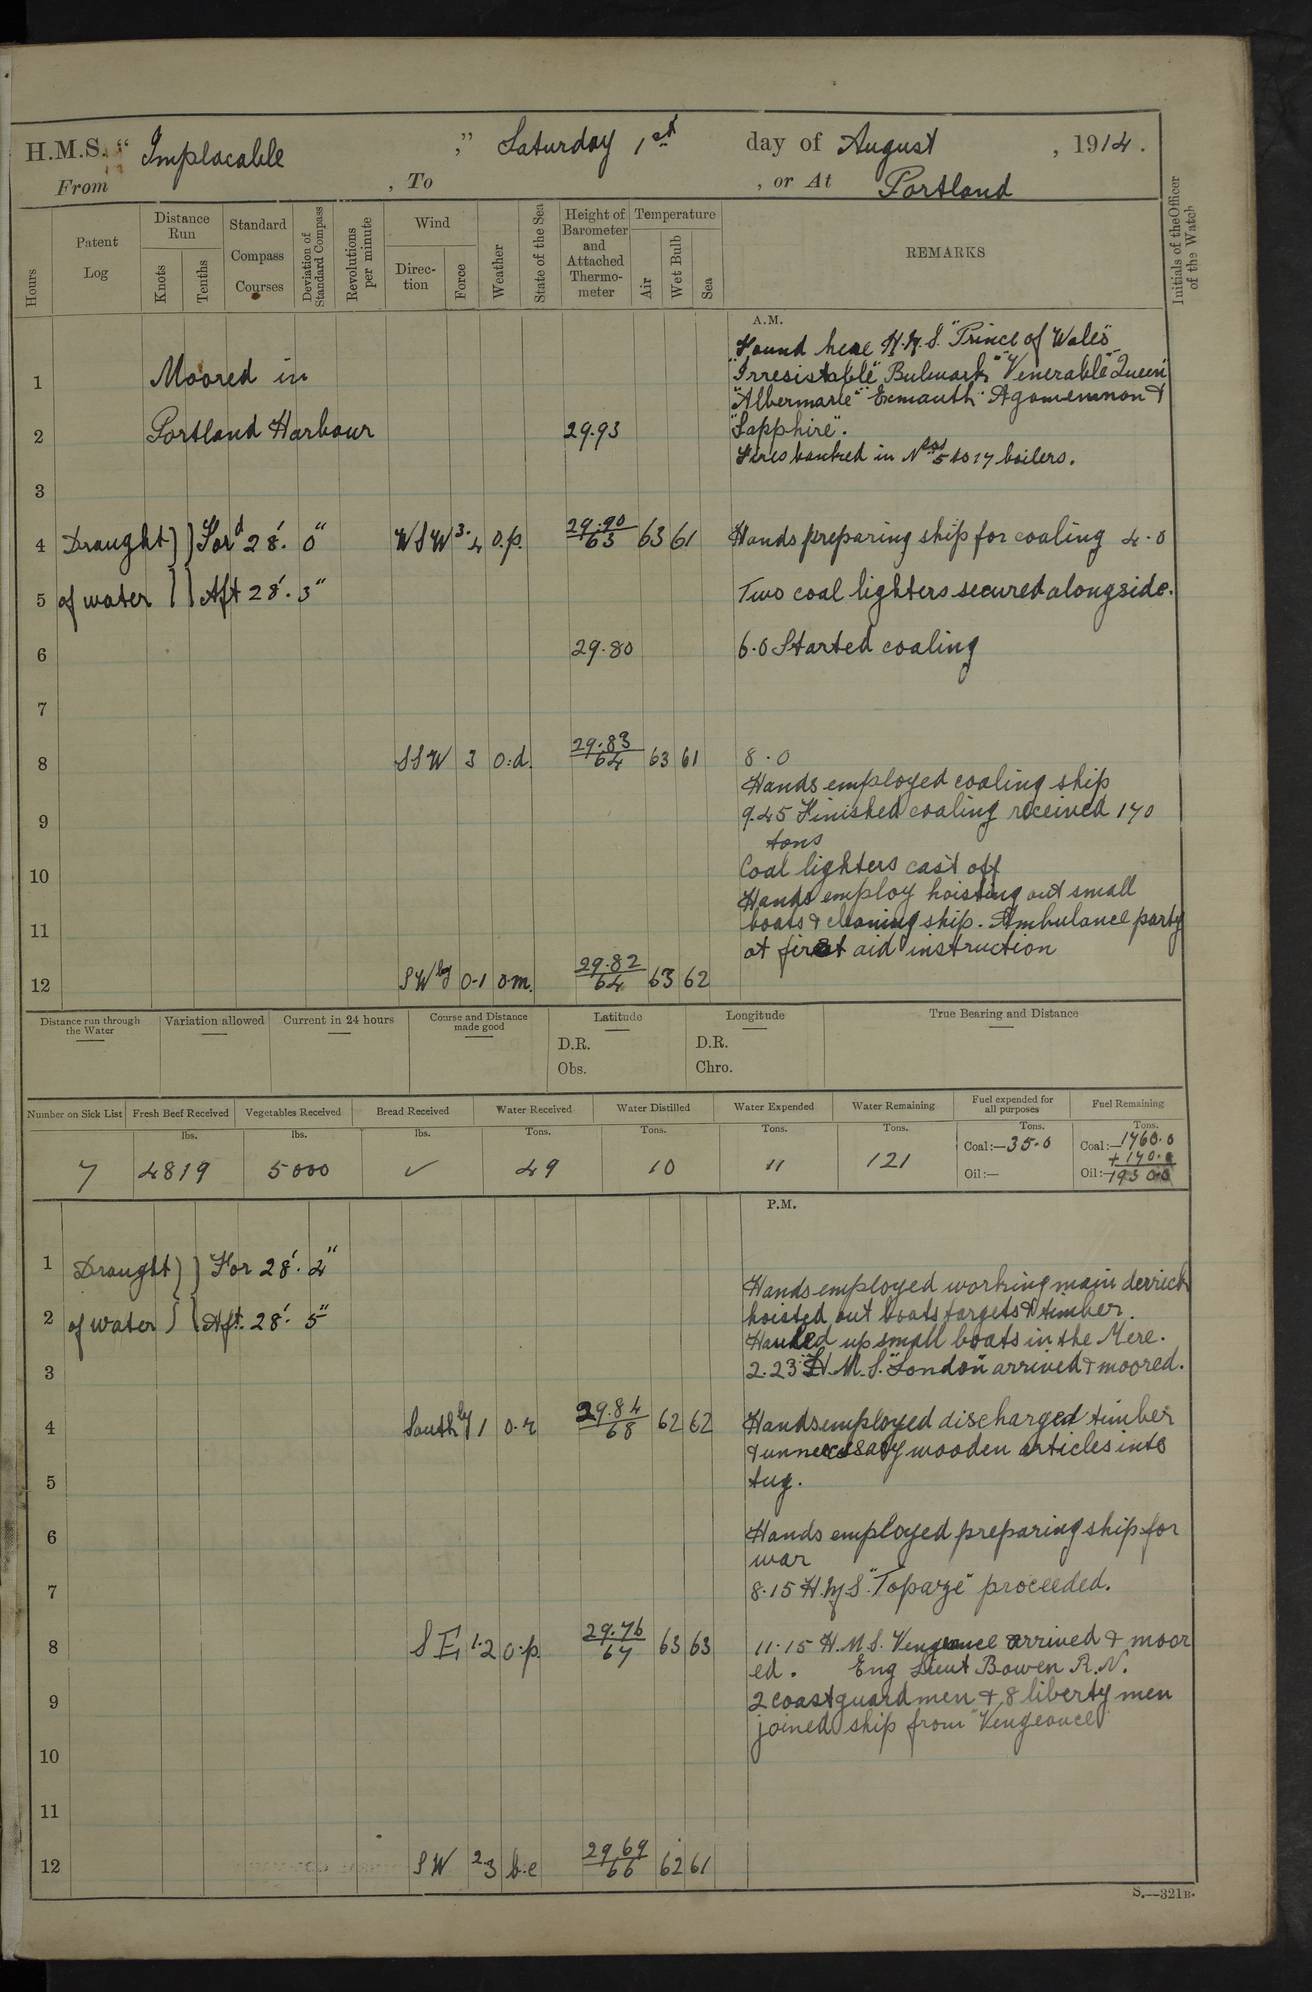 H.M.S. "Implacable", Saturday 1st day of August, 1914.
From , To , or At Portland
Hours
Patent Log
Distance Run
Knots
Tenths
Standard Compass Courses
Deviation of Standard Compass
Revolutions per minute
Wind
Direction
Force
Weather
State of the Sea
Height of Barometer and Attached Thermometer
Temperature
Air
Wet Bulb
Sea
REMARKS
Initials of the Officer of the Watch
A.M.
Found here H.M.S. "Prince of Wales"
1 Moored in "Irresistable" Bulwark" "Venerable" Queen"
"Albermarle" Exmouth" Agamemnon &
2 Portland Harbour 29.93 "Sapphire".
Fires banked in Nos 5 to 17 boilers.
3
4 Draught } } Ford 28'. 0" WSW 3.4 o.p. 29.90/63 63 61 Hands preparing ship for coaling 4.0
5 of water } } Aft 28'. 3" Two coal lighters secured alongside.
6 29.80 6.0 Started coaling
7
8 SSW 3 o:d. 29.83/64 63 61 8.0
Hands employed coaling ship
9 9.45 Finished coaling received 170
tons
10 Coal lighters cast off
Hands employ hoisting out small
11 boats & cleaning ship. Ambulance party
at first aid instruction
12 SWly 0-1 o.m. 29.82/64 63 62
Distance run through the Water
Variation allowed
Current in 24 hours
Course and Distance made good
Latitude
D.R.
Obs.
Longitude
D.R.
Chro.
True Bearing and Distance
Number on Sick List Fresh Beef Received Vegetables Received Bread Received Water Received Water Distilled Water Expended Water Remaining Fuel expended for all purposes Fuel Remaining
lbs. lbs. lbs. Tons. Tons. Tons. Tons. Tons. Tons.
7 4819 5000 ✓ 49 10 11 121 Coal:—35.0 Coal:—1760.0
+170.0
Oil:— Oil:—1930.0
P.M.
1 Draught } } For 28'. 2"
Hands employed working main derrick
2 of water } } Aft. 28'. 5" hoisted out boats targets & timber.
Hauled up small boats in the Mere.
3 2.23 H.M.S. "London" arrived & moored.
4 Southly 1 o.r 29.84/68 62 62 Hands employed discharged timber
& unnecessary wooden articles into
5 tug.
6 Hands employed preparing ship for
war
7 8.15 H.M.S. "Topaze" proceeded.
8 SE 1.2 o:p. 29.76/67 63 63 11.15 H.M.S. Vengeance arrived & moor
ed. Eng Lieut Bowen R.N.
9 2 coastguard men & 8 liberty men
joined ship from "Vengeance"
10
11
12 SW 2.3 b:c 29.69/66 62 61
S.—321B.